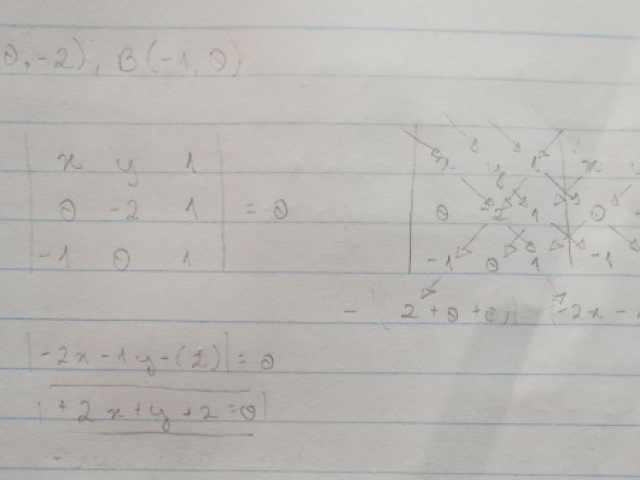 0, -2), B(-1, 0)
| x y 1 |
| 0 -2 1 | = 0
| -1 0 1 |
| x y 1 | x y
0 -2 1 | 0
-1 0 1 | -1
- (2 + 0 + 0) (-2x -
|-2x - 1y - (2)| = 0
+2x + y + 2 = 0